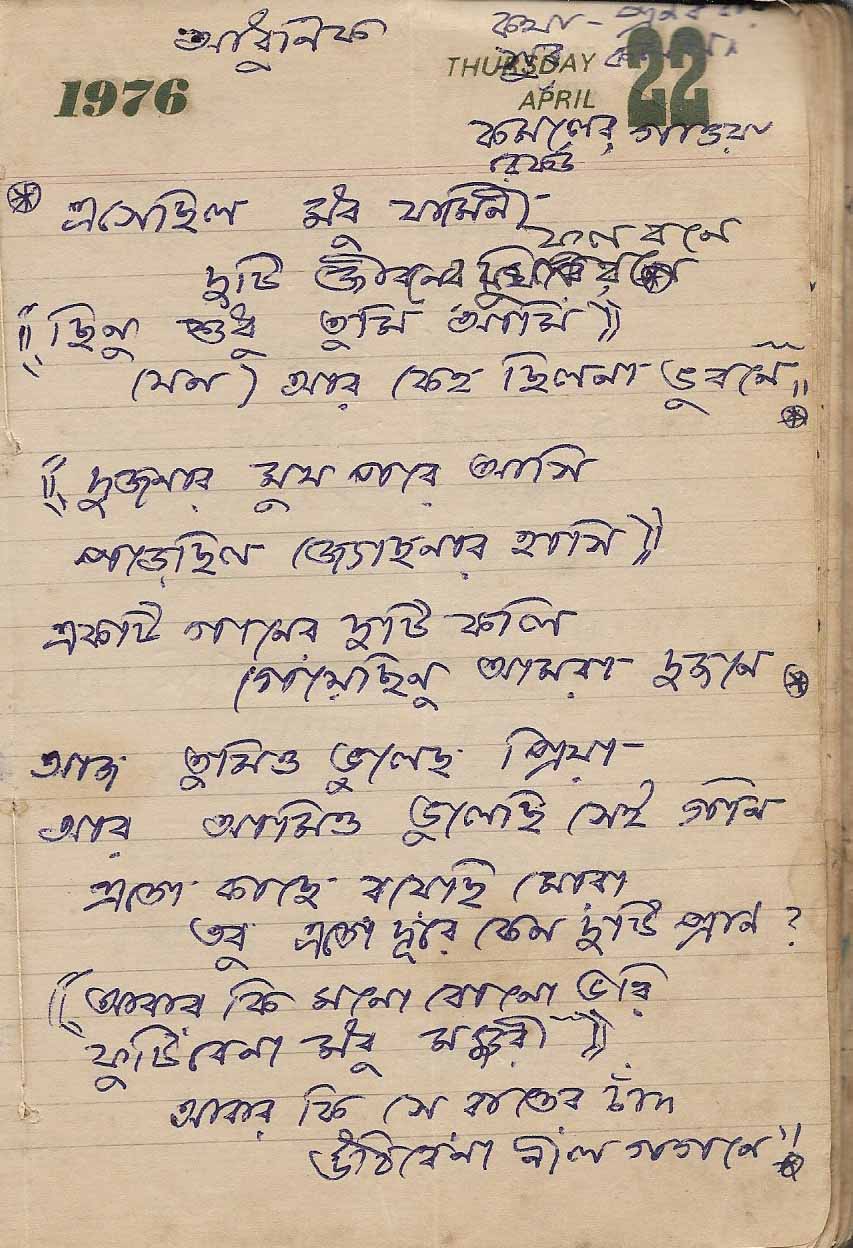 আধুনিক
কথা -
সুর
1976
THURSDAY
APRIL
22
কমলের গাওয়া
রেকর্ড
এসেছিল মধু যামিনী
ফুল বনে
দুটি জীবনের
(( ছিনু শুধু তুমি আমি ))
(যেন) আর কেহ ছিলনা ভুবনে
(( দুজনার মুখ পরে আসি
পড়েছিল জ্যোছনার হাসি ))
একটি গানের দুটি কলি
গেয়েছিনু আমরা দুজনে
আজ তুমিও ভুলেছ প্রিয়া
আর আমিও ভুলেছি সেই গান
এতো কাছে রয়েছি মোরা
তবু এতো দূরে কেন দুটি প্রান ?
(( আবার কি মনো বনো ভরি
ফুটিবেনা মধু মঞ্জরী ))
আবার কি সে রাতের চাঁদ
উঠিবেনা নীল গগনে